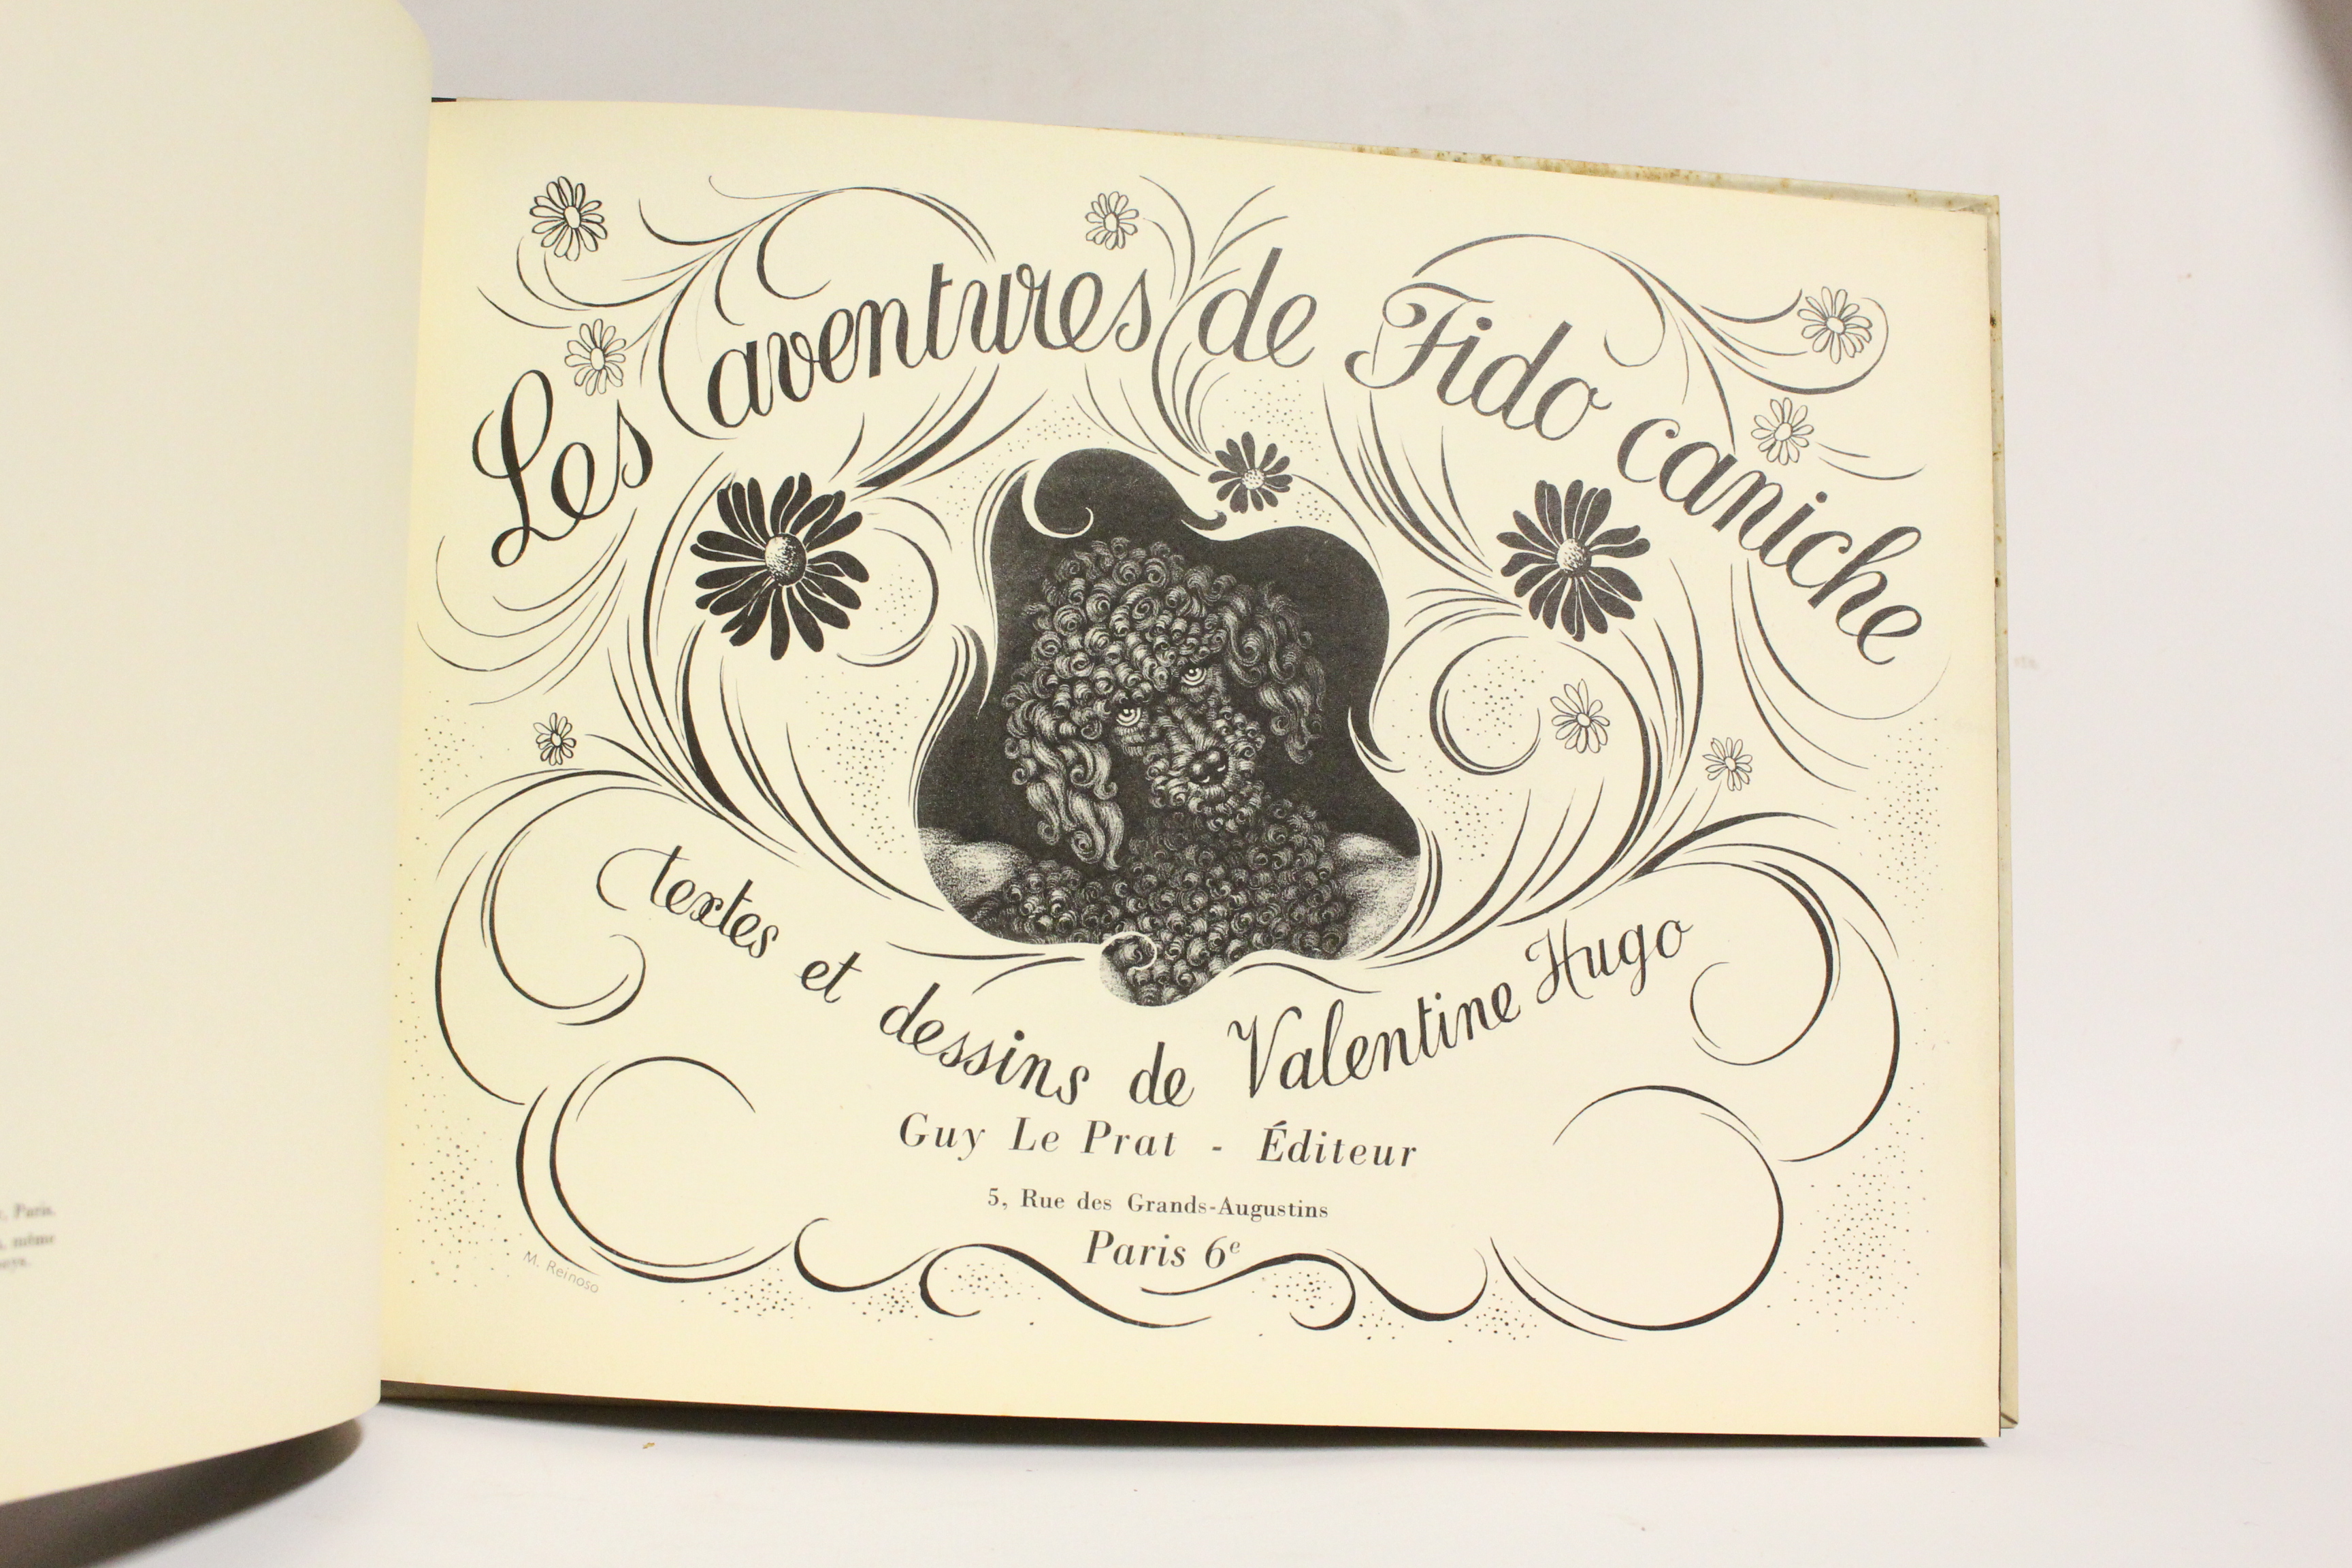 Les aventures de Fido caniche
textes et dessins de Valentine Hugo
Guy Le Prat - Éditeur
5, Rue des Grands-Augustins
Paris 6e
M. Reinoso
Paris.
même